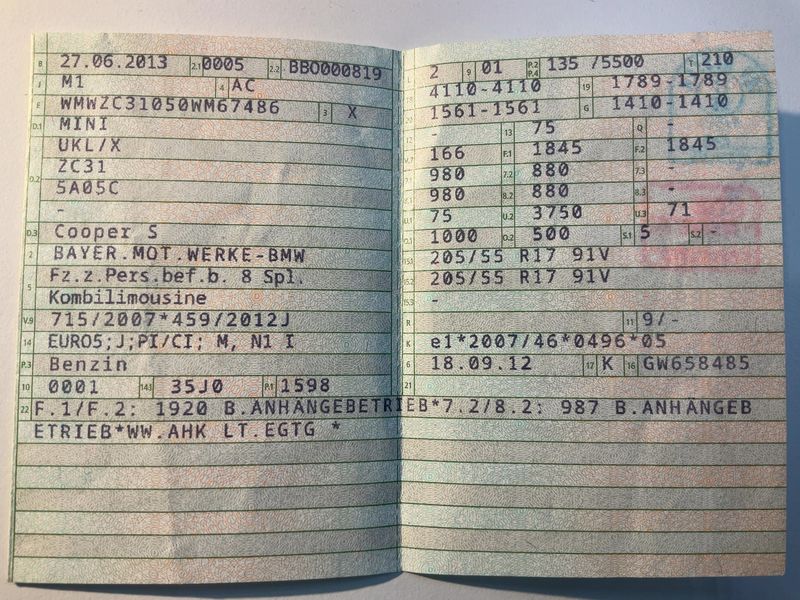 B 27.06.2013 2.1 0005 2.2 BBO000819
J M1 4 AC
E WMWZC31050WM67486 3 X
D.1 MINI
UKL/X
D.2 ZC31
5A05C
-
D.3 Cooper S
2 BAYER.MOT.WERKE-BMW
5 Fz.z.Pers.bef.b. 8 Spl.
Kombilimousine
V.9 715/2007*459/2012J
14 EURO5;J;PI/CI; M, N1 I
P.3 Benzin
10 0001 14.1 35J0 P.1 1598
L 2 9 01 P.2 P.4 135 /5500 T 210
18 4110-4110 19 1789-1789
20 1561-1561 G 1410-1410
12 - 13 75 Q -
V.7 166 F.1 1845 F.2 1845
7.1 980 7.2 880 7.3 -
8.1 980 8.2 880 8.3 -
U.1 75 U.2 3750 U.3 71
O.1 1000 O.2 500 S.1 5 S.2 -
15.1 205/55 R17 91V
15.2 205/55 R17 91V
15.3 -
R 11 9/-
K e1*2007/46*0496*05
6 18.09.12 17 K 16 GW658485
21
22 F.1/F.2: 1920 B.ANHÄNGEBETRIEB*7.2/8.2: 987 B.ANHÄNGEB
ETRIEB*WW.AHK LT.EGTG *